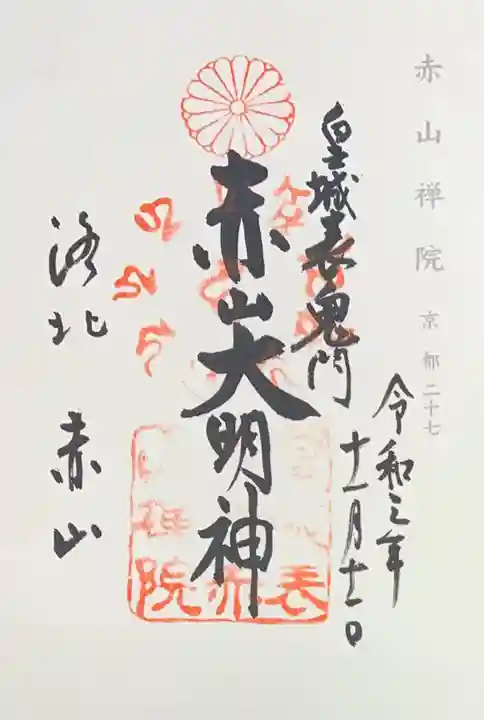 赤山禅院 京都二十七
令和三年
十一月十一日
皇城表鬼門
赤山大明神
洛北 赤山